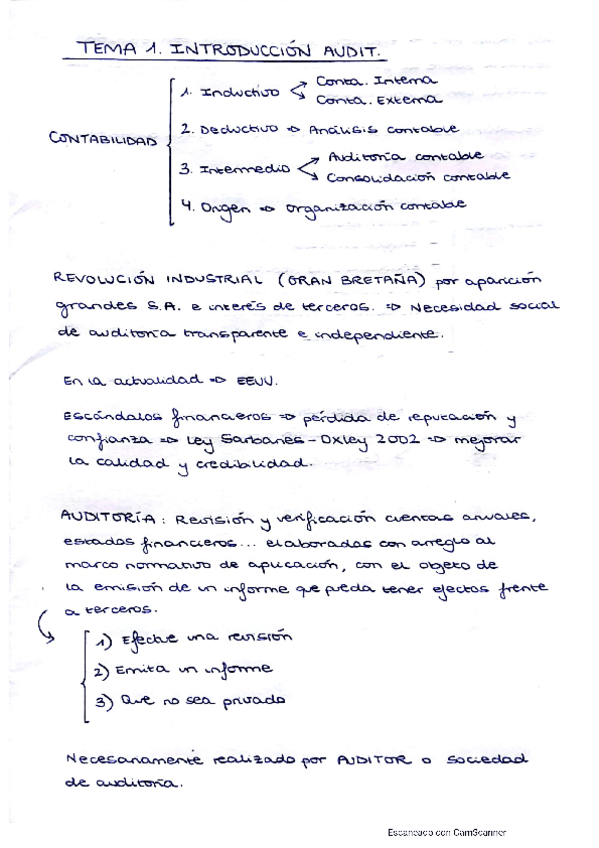 TEMA 1. INTRODUCCIÓN AUDIT.
CONTABILIDAD
1. Inductivo → Conta. Interna
→ Conta. Externa
2. Deductivo ⇒ Análisis contable
3. Intermedio → Auditoría contable
→ Consolidación contable
4. Origen ⇒ organización contable
REVOLUCIÓN INDUSTRIAL (GRAN BRETAÑA) por aparición
grandes S.A. e interés de terceros. ⇒ Necesidad social
de auditoría transparente e independiente.
En la actualidad ⇒ EEUU.
Escándalos financieros ⇒ pérdida de reputación y
confianza ⇒ Ley Sarbanes-Oxley 2002 ⇒ mejorar
la calidad y credibilidad.
AUDITORÍA: Revisión y verificación cuentas anuales,
estados financieros... elaborados con arreglo al
marco normativo de aplicación, con el objeto de
la emisión de un informe que pueda tener efectos frente
a terceros.
1) Efectue una revisión
2) Emita un informe
3) Que no sea privado
Necesariamente realizado por AUDITOR o sociedad
de auditoría.
Escaneado con CamScanner